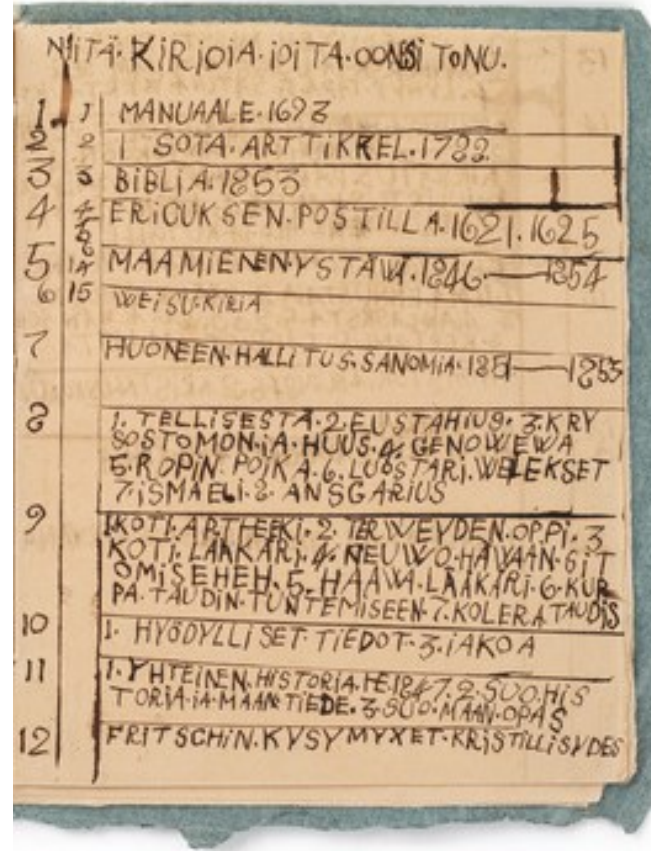 NIITÄ.KIRJOIA.IOITA.OONSITONU.
1 1 MANUAALE.1693
2 2 1 SOTA.ARTTIKKEL.1782
3 3 BIBLIA.1853
4 4 ERICUKSEN.POSTILLA.1621.1625
5 14 MAAMIENEN.YSTÄWÄ.1846—1854
6 15 WEISU.KIRIA
7 HUONEEN.HALLITUS.SANOMIA.1851—1855
8 1. TELLISESTÄ.2.EUSTAHIUS.3.KRY
SOSTOMON.IA.HUUS.4.GENOWEWA
5.ROPIN.POIKA.6.LUOSTARI.WELEKSET
7.ISMAELI.8.ANSGARIUS
9 1KOTI.APTHEEKI.2.TERWEYDEN.OPPI.3
KOTI.LÄÄKÄRI.4.NEUWO.HAWAAN.SIT
OMISEHEH.5.HAAWA.LÄÄKÄRI.6.KUP
PA.TAUDIN.TUNTEMISEEN.7.KOLERATAUDIS
10 1. HYÖDYLLISET.TIEDOT.3.IAKOA
11 1.YHTEINEN.HISTORIA.PE.1847.2.SUO.HIS
TORIA.IA.MAAN.TIEDE.3.SUO.MAAN.OPAS
12 FRITSCHIN.KYSYMYXET.KRISTILLISYDES